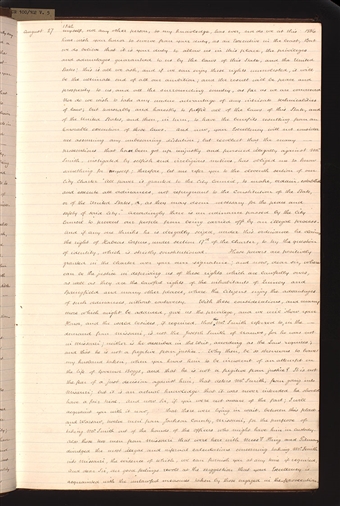 August 27
myself, nor any other person, to my knowledge, has ever, nor do we at this 1842
time wish even hinted to swerve from our duty, as an Executive in the least, But
we do believe that it is your duty to allow us in this place, the privileges
and advantages guaranteed to us by the laws of this State, and the United
States; this is all we ask, and if we can enjoy these rights unmolested, it will
be the ultimate end of all our ambition; and the result will be peace and
prosperity to us, and all the surrounding country, so far as we are concerned
Nor do we wish to take any undue advantage of any intricate technicalities
of law; but honorably and honestly to fulfil all of the laws of this State, and
of the United States, and then, in turn, to have the benefits resulting from an
honorable execution of those laws. And now, your Excellency will not consider
me assuming any unbecoming dictation, but recollect that the many
prosecutions that has been got up unjustly and pursued illegally against Mr
Smith, instigated by selfish and irreligious motives, has obliged me to know
something for myself; therefore, let me refer you to the eleventh section of our
City Charter "All power is granted to the City Council, to make, ordain, establish
and execute all ordinances, not repugnant to the Constitution of the State,
or of the United States, or, as they may deem necessary for the peace and
safety of said city." Accordingly there is an ordinance passed by the City
Council to prevent our people from being carried off by an illegal process.
And if any one thinks he is illegally seized, under this ordinance he claims
the right of Habeas Corpus, under section 17th of the Charter, to try the question
of identity, which is strictly constitutional. These powers are positively
granted in the Charter over your own signature; and now, dear sir, where
can be the justice in depriving us of these rights which are lawfully ours,
as well as they are the lawful rights of the inhabitants of Quincy and
Springfield and many other places, where the citizens enjoy the advantages
of such ordinances, without controversy. With these considerations, and many
more which might be adduced, give us the privilege, and we will show your
Honor, and the world besides, if required, that the Mr Smith referred to in the
demand from Missouri, is not the Joseph Smith of Nauvoo, for he was not
in Missouri; neither is he described in the Writ, according as the Law requires;
and that he is not a fugitive from justice. Why then, be so strenuous to have
my husband taken, when you know him to be innocent of an attempt on
the life of Governor Boggs, and that he is not a fugitive from justice? It is not
the fear of a just decision against him, that deters Mr Smith from going into
Missouri; but it is an actual knowledge that it was never intended he should
have a fair trial. And now Sir, if you were not aware of the fact; I will
acquaint you with it now, That there were lying in wait, between this place
and Warsaw, twelve men from Jackson County, Missouri, for the purpose of
taking Mr Smith out of the hands of the Officers who might have him in custody.
Also those two men from Missouri that were here with Messrs King and Pitman,
divulged the most illegal and infernal calculations concerning taking Mr Smith
into Missouri, the evidence of which, we can furnish you at any time, if required.
And dear Sir, our good feelings revolt at the suggestion that your Excellency is
acquainted with the unlawful measures taken by those engaged in the prosecution